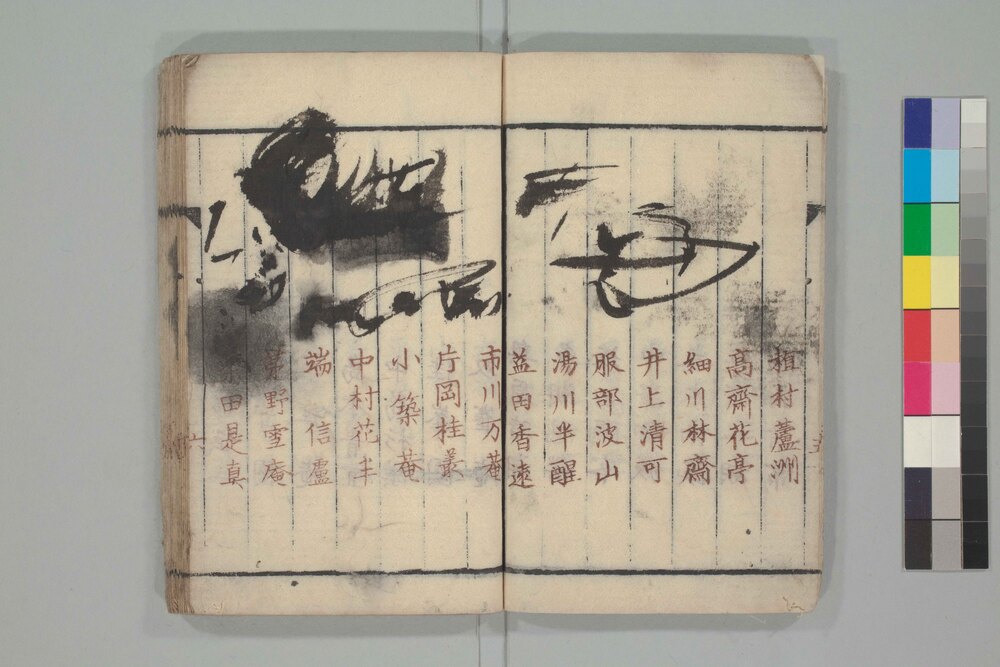 植村蘆洲
高齋花亭
細川林齋
井上清可
服部波山
湯川半醒
益田香遠
市川万菴
片岡桂叢
小築菴
中村花半
端信盧
野雪庵
田是真